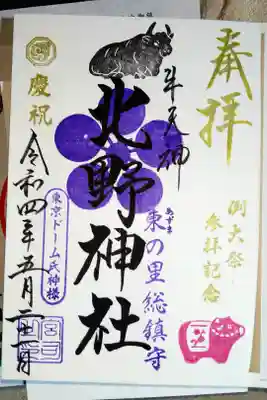 奉拝
例大祭
参拝記念
牛天神
北野神社
東の里総鎮守
あずま
慶祝
令和四年五月二十一日
東京ドーム氏神様